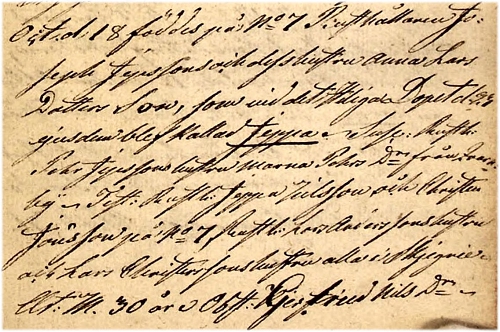 Oct. d. 18 föddes på No 7 Rusthållaren Jo-
seph Jepssons och dess hustru Anna Lars
Dotters Son, som vid det Heliga Dopet d. 23
ejusdem blef kallad Jeppa. Susc: Rusth:
Pehr Jepssons hustru Marna Pehrs Dr från
by. Test: Rusth: Jeppa Nilsson och Christen
Jönsson på No 7 Rusth: Lars Anders sons hustru
och Lars Christenssons hustru alla i
Ået: M. 30 år. Obst: Kjerstina Nils Dr